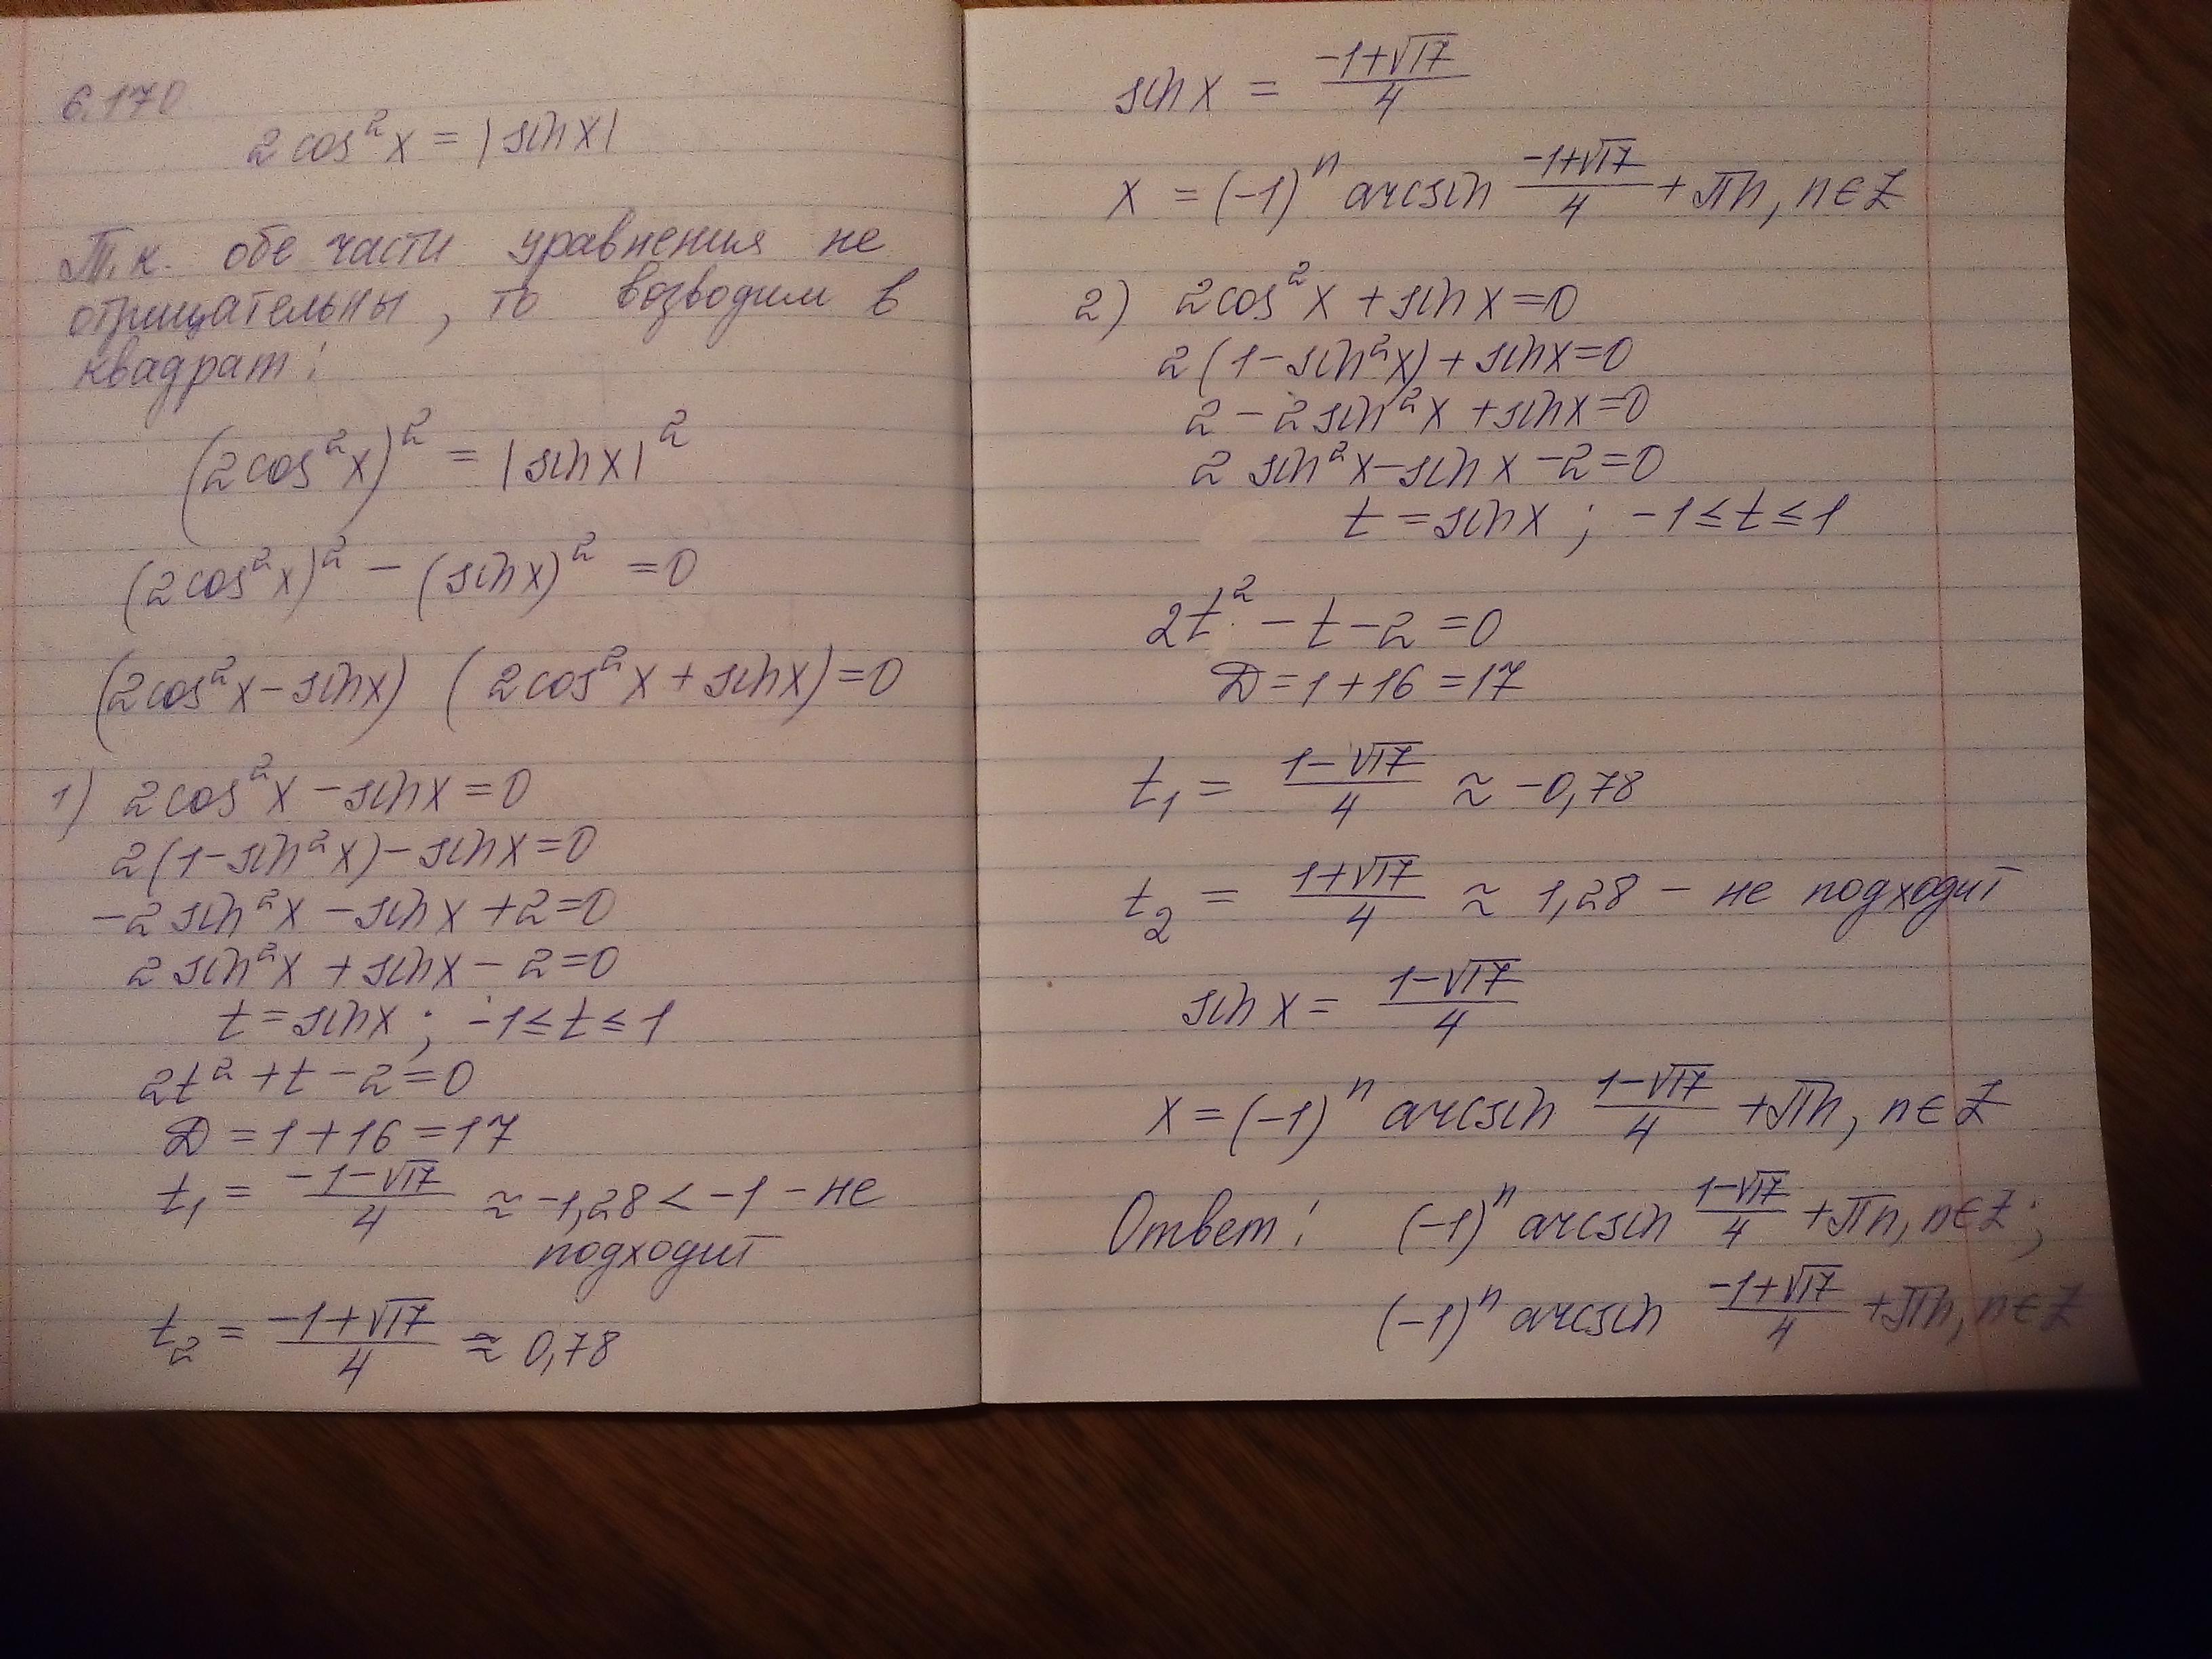 6.170
2cos²x = |sin x|
Т.к. обе части уравнения не
отрицательны, то возводим в
квадрат:
(2cos²x)² = |sin x|²
(2cos²x)² - (sin x)² = 0
(2cos²x - sin x) (2cos²x + sin x) = 0
1) 2cos²x - sin x = 0
2(1 - sin²x) - sin x = 0
-2 sin²x - sin x + 2 = 0
2 sin²x + sin x - 2 = 0
t = sin x ; -1 ≤ t ≤ 1
2t² + t - 2 = 0
D = 1 + 16 = 17
t₁ = (-1-√17)/4 ≈ -1,28 < -1 - не
подходит
t₂ = (-1+√17)/4 ≈ 0,78
sin x = (-1+√17)/4
x = (-1)ⁿ arcsin (-1+√17)/4 + πn, n ∈ Z
2) 2cos²x + sin x = 0
2(1 - sin²x) + sin x = 0
2 - 2sin²x + sin x = 0
2 sin²x - sin x - 2 = 0
t = sin x ; -1 ≤ t ≤ 1
2t² - t - 2 = 0
D = 1 + 16 = 17
t₁ = (1-√17)/4 ≈ -0,78
t₂ = (1+√17)/4 ≈ 1,28 - не подходит
sin x = (1-√17)/4
x = (-1)ⁿ arcsin (1-√17)/4 + πn, n ∈ Z
Ответ: (-1)ⁿ arcsin (1-√17)/4 + πn, n ∈ Z;
(-1)ⁿ arcsin (-1+√17)/4 + πn, n ∈ Z